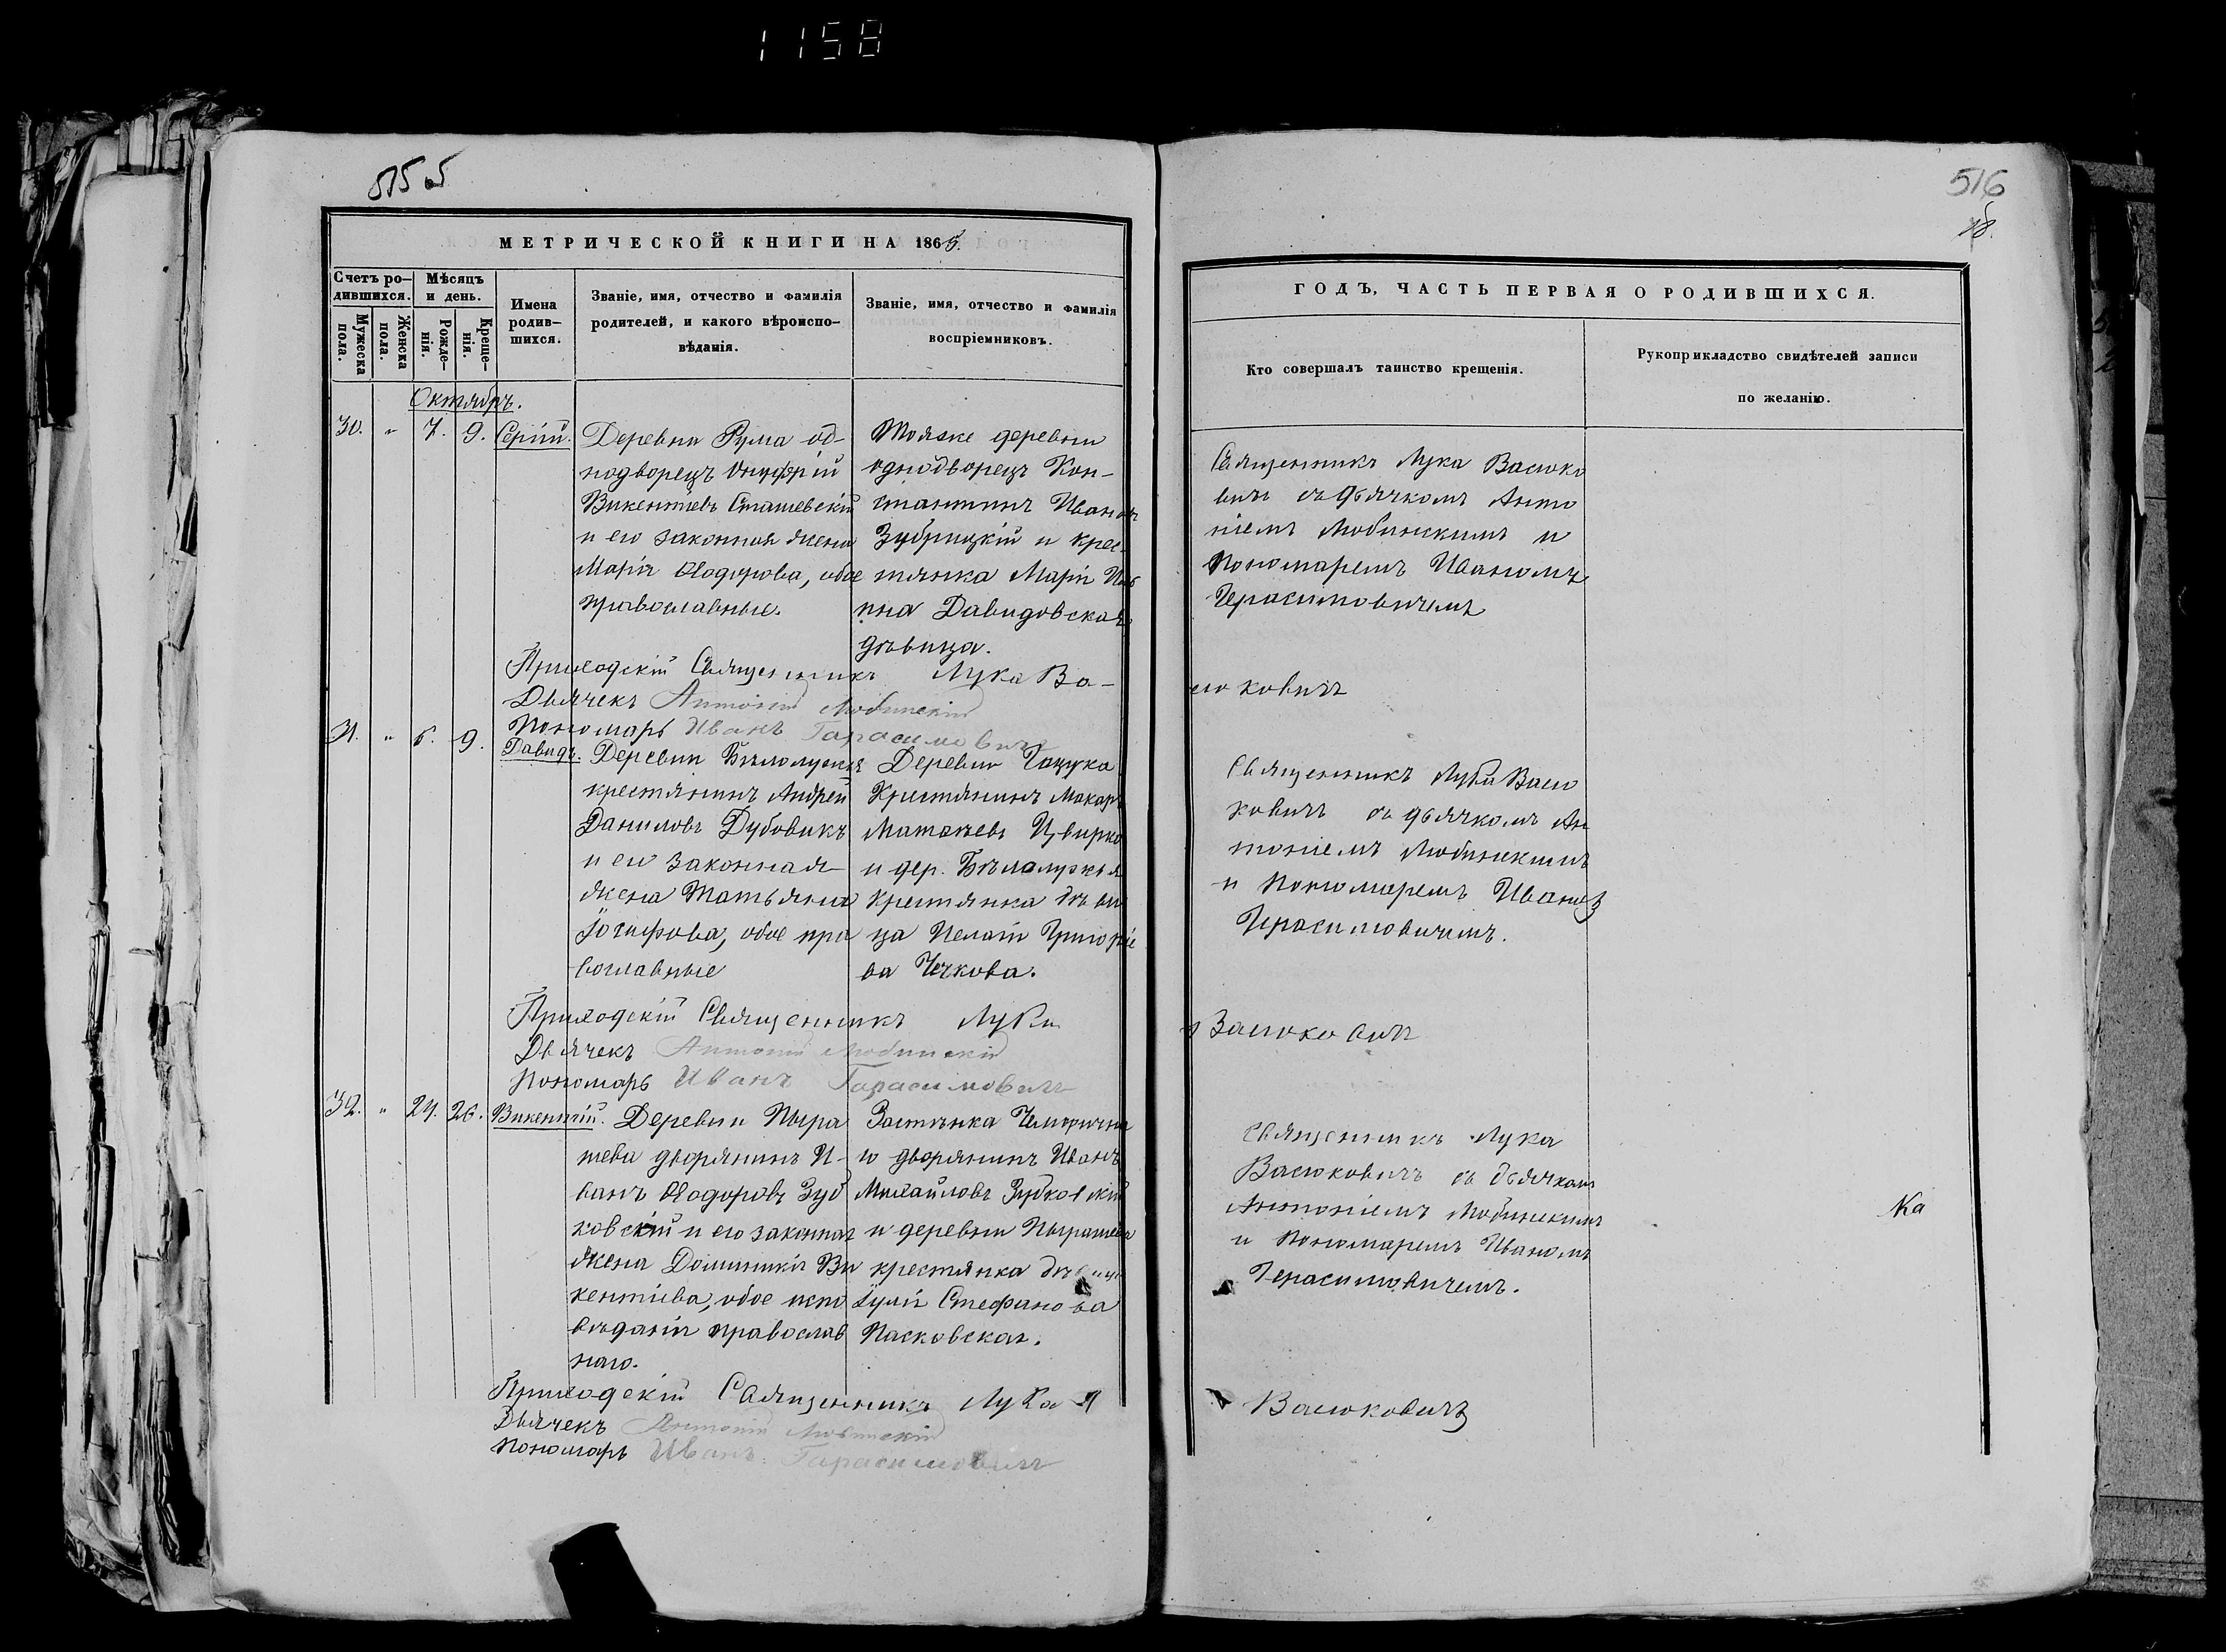 1158
515
516
МЕТРИЧЕСКОЙ КНИГИ НА 1865.
Счетъ ро-
дившихся.
Мѣсяцъ
и день.
Мужеска
пола.
Женска
пола.
Рожде-
нія.
Креще-
нія.
Имена
родив-
шихся.
Званіе, имя, отчество и фамилія
родителей, и какого вѣроиспо-
вѣданія.
Званіе, имя, отчество и фамилія
воспріемниковъ.
Октябрь.
30. „ 7. 9. Сергій.
Деревни Рума од-
нодворецъ Онуфрій
Викентіевъ Сташевскій
и его законная жена
Марія Ѳодорова, обое
православные.
Тояже деревни
однодворецъ Кон-
стантинъ Ивановъ
Зубрицкій и крес-
тянка Марія
Давидовская
дѣвица.
Приходскій Священникъ Лука Ва-
Дьячекъ Антоній Любинскій
Пономарь Иванъ Гарасимовичъ
31. „ 6. 9. Давидъ.
Деревни
крестянинъ Андрей
Даниловъ Дубовикъ
и его законная
жена Татьяна
Іосифова, обое пра
вославные
Деревни
Крестянинъ Макаръ
Матвѣевъ Цвирко
и дер.
крестянка дѣви
ца Пелагія Григоріе
ва Чечкова.
Приходскій Священникъ Лука
Дьячекъ Антоній Любинскій
Пономарь Иванъ Гарасимовичъ
32. „ 24. 26. Викентій.
Деревни Пыра
шева дворянинъ И-
ванъ Ѳодоровъ Зуб
ковскій и его законная
жена Доминикія Ви
кентіева, обое испо
вѣданія православ
наго.
Застѣнка
дворянинъ Иванъ
Михайловъ Зубковскій
и деревни Пырашева
крестянка дѣвица
Іулія Стефанова
Пасковская.
Приходскій Священникъ Лука
Дьячекъ Антоній Любинскій
Пономарь Иванъ Гарасимовичъ
ГОДЪ, ЧАСТЬ ПЕРВАЯ О РОДИВШИХСЯ.
Кто совершалъ таинство крещенія.
Рукоприкладство свидѣтелей записи
по желанію.
Священникъ Лука Васюко
вичъ съ дьячкомъ Анто
ніемъ Любинскимъ и
Пономаремъ Иваномъ
Герасимовичемъ
сюковичъ
Священникъ Лука Васю
ковичъ съ дьячкомъ Ан
тоніемъ Любинскимъ
и Пономаремъ Иваномъ
Герасимовичемъ.
Васюковичъ
Священникъ Лука
Васюковичъ съ дьячкомъ
Антоніемъ Любинскимъ
и Пономаремъ Иваномъ
Герасимовичемъ.
Ка
Васюковичъ